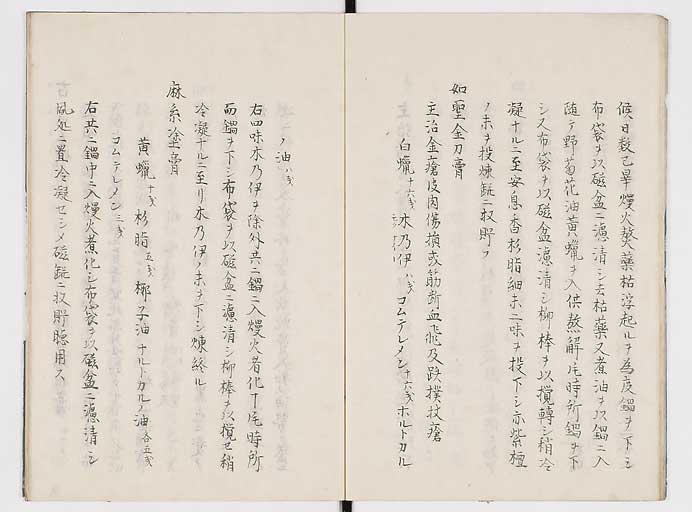 候日数已畢熳火熬藥枯浮起ルヲ為度鍋ヲ下シ
布袋ヲ以磁盆ニ濾清シ去枯藥又煮油ヲ以鍋ニ入
随テ野菊花油黄蠟ヲ入供熬解尼時所鍋ヲ下
シ又布袋ヲ以磁盆濾清シ柳棒ヲ以攪轉シ稍冷
凝ナルニ至安息香杉脂細末二味ヲ投下シ亦紫檀
ノ末ヲ投煉瓶ニ収貯フ
如聖金刀膏
主治金瘡皮肉傷損或筋断血飛及跌撲杖瘡
白蠟 十六戔 木乃伊 八戔 コムテレメン 十六戔 ホルトカル
ノ油 八戔
右四味木乃伊ヲ除外共ニ鍋ニ入熳火煮化シ尼時所
而鍋ヲ下シ布袋ヲ以磁盆ニ濾清シ柳棒ヲ以攪セ稍
冷凝ナルニ至リ木乃伊ノ末ヲ下シ煉終ル
麻系塗膏
黄蠟 十戔 杉脂 五戔 椰子油 ホルトカルノ油 各五戔
コムテレメン 三戔
右共ニ鍋中ニ入熳火煮化シ布袋ヲ以磁盆ニ濾清シ
風処ニ置冷凝セシメ磁瓶ニ収貯聴用ス